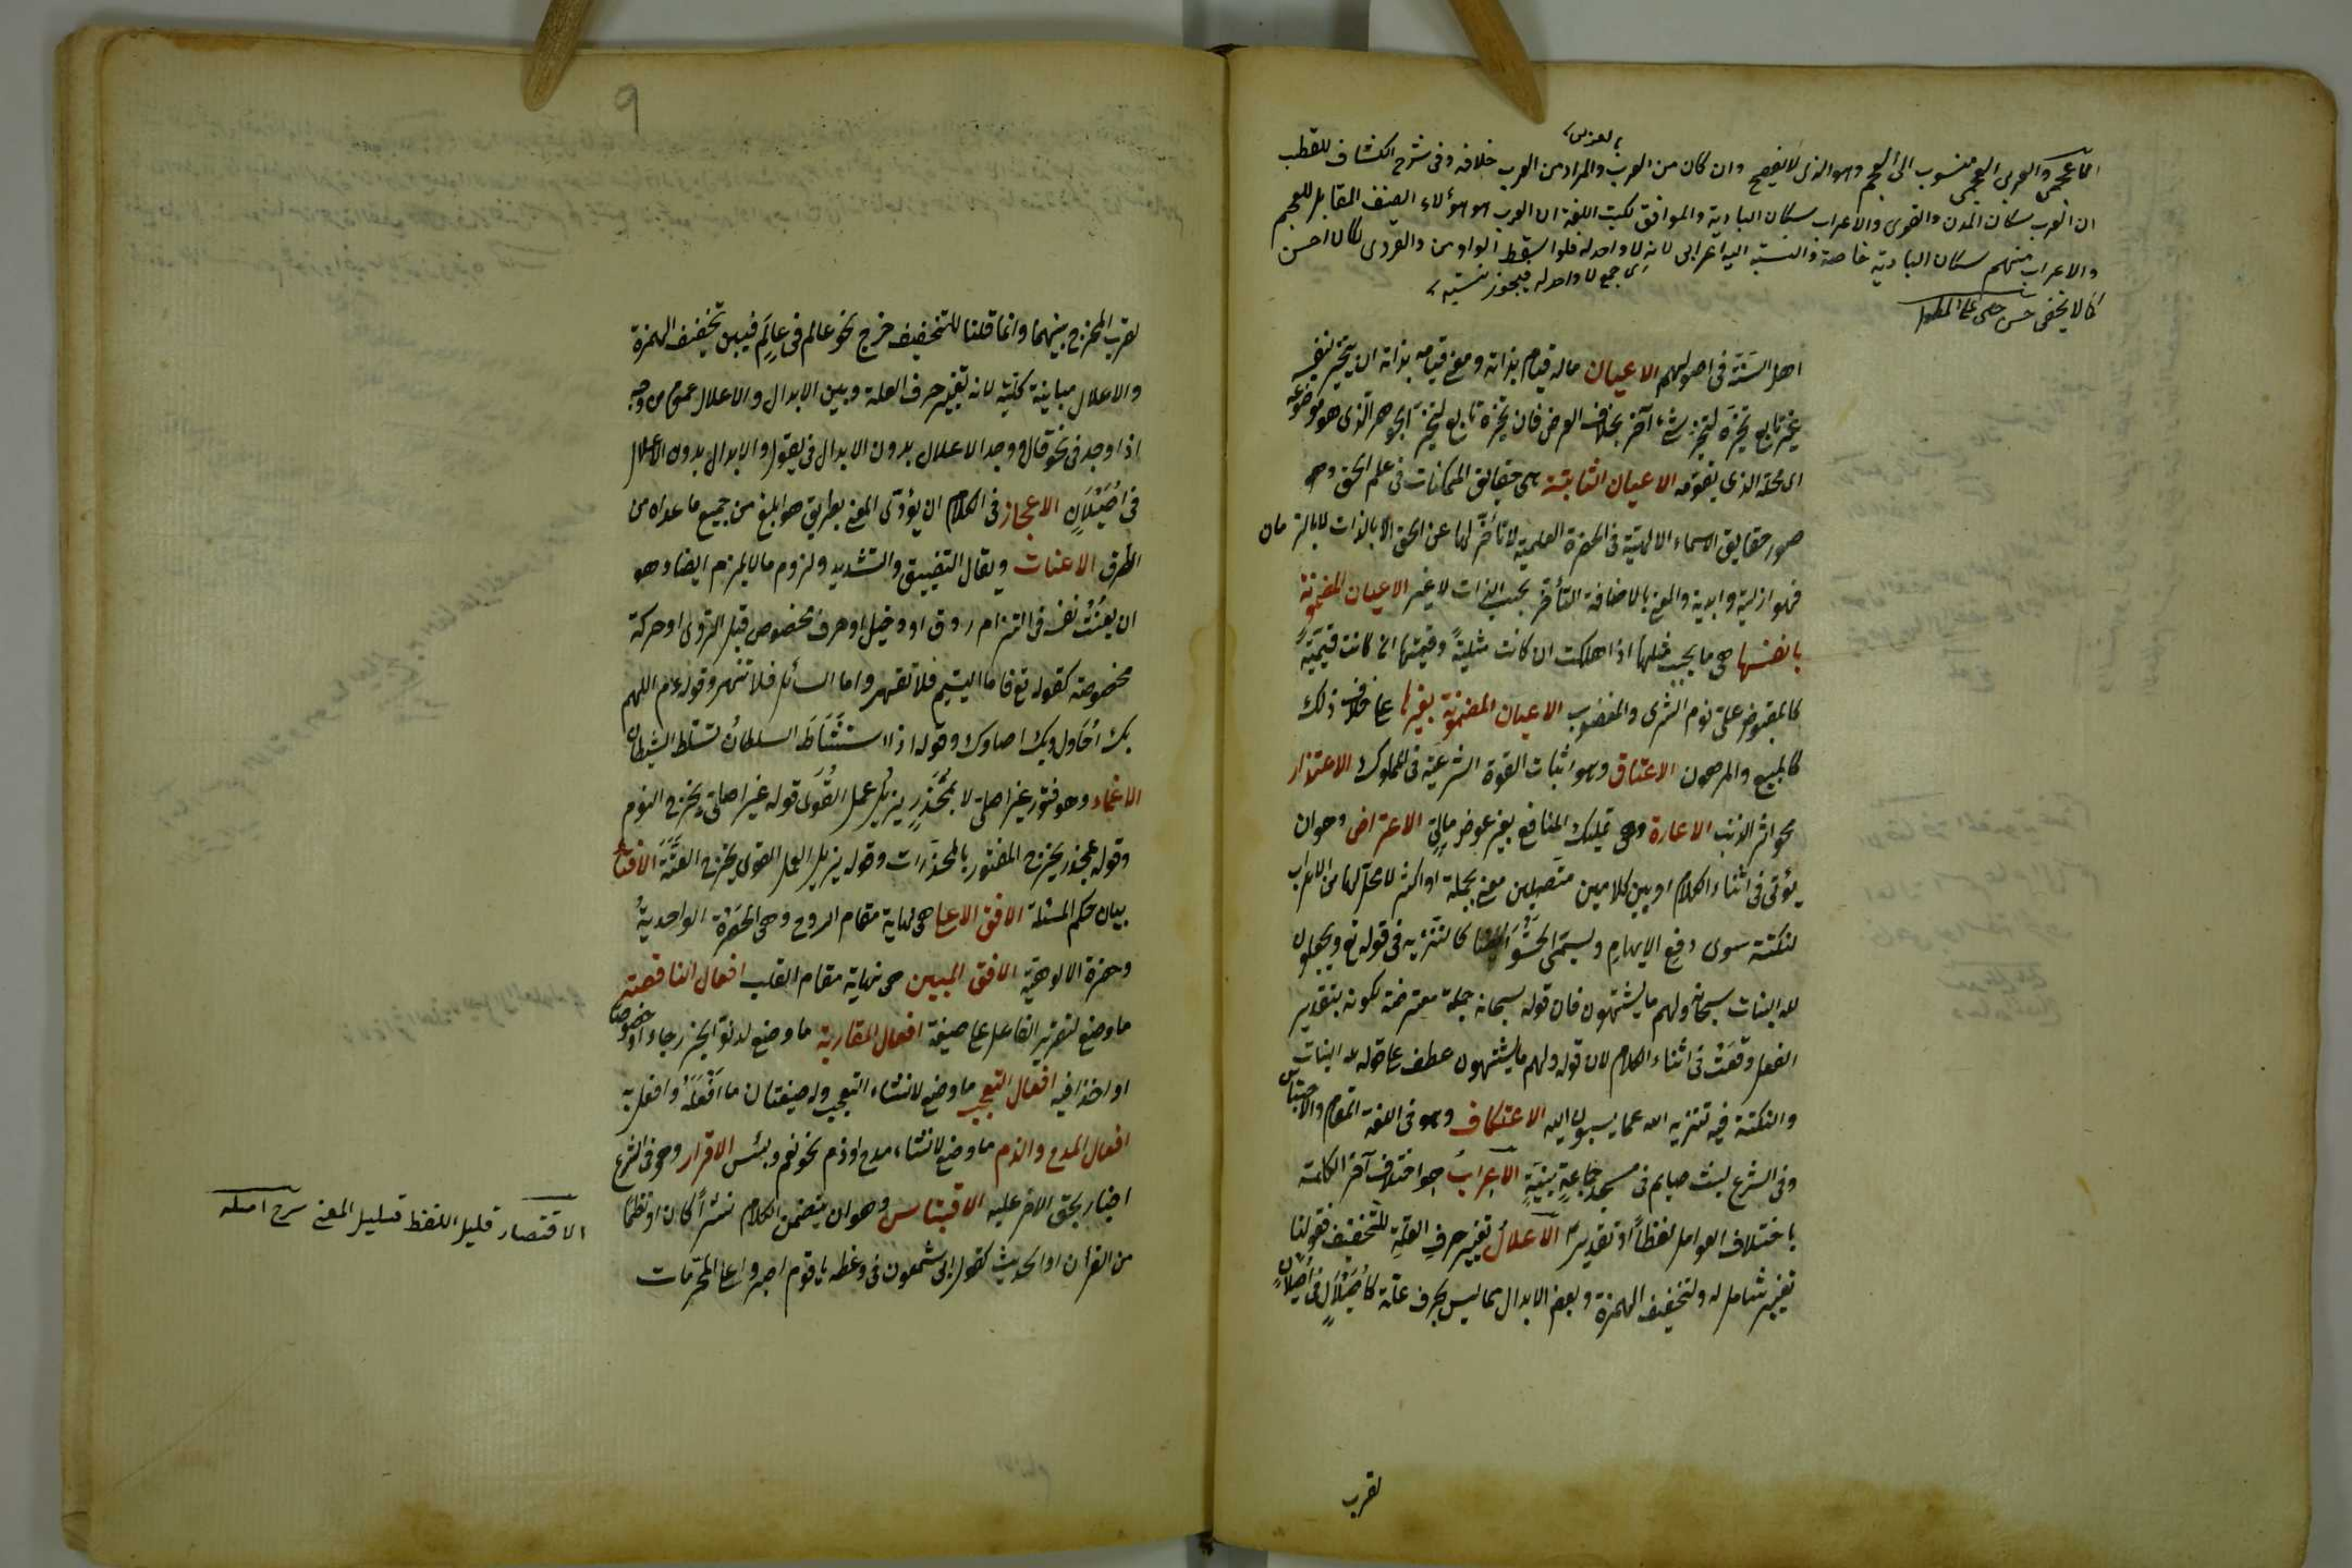 الاعجمى والعربى العجمى منسوب الى العجم وهو الذى لا يفصح وان كان من العرب والمراد من العرب خلافه وفى شرح الكشاف للقطب
ان العرب سكان المدن والقرى والاعراب سكان البادية والموافق لكتب اللغة ان العرب هو هؤلاء الصنف المقابل للعجم
والاعراب منهم سكان البادية خاصة والنسبة اليه اعرابى لانه لا واحد له
اى جمع لا واحد له فيجوز نسبته
كما لا يخفى حسن جلبى على المطول
اهل السنة فى اصولهم الاعيان ماله قيام بذاته ومعنى قيامه بذاته ان يتحيز بنفسه
غير تابع تحيزه لتحيز شئ آخر بخلاف العرض فان تحيزه تابع لتحيز الجوهر الذى هو موضوعه
اى محله الذى يقومه الاعيان الثابتة هى حقائق الممكنات فى علم الحق وهى
صور حقايق الاسماء الالهية فى الحضرة العلمية لا تأخر لها عن الحق الا بالذات لا بالزمان
فهو ازلية وابدية والمعنى بالاضافة التأخر بحسب الذات لا غير الاعيان المضمونة
بانفسها هى ما يجب مثلها اذا هلكت ان كانت مثلية وقيمتها ان كانت قيمية
كالمقبوض على سوم الشرى والمغصوب الاعيان المضمونة بغيرها على خلاف ذلك
كالمبيع والمرهون الاعتاق وهو اثبات القوة الشرعية فى المملوك الاعتذار
محو اثر الذنب الاعارة وهى تمليك المنافع بغير عوض مالى الاعتراض وهو ان
يؤتى فى اثناء الكلام او بين كلامين متصلين معنى بجملة او اكثر لا محل لها من الاعراب
لنكتة سوى دفع الايهام ويسمى الحشو ايضا كالتنزيه فى قوله تع ويجعلون
لله البنات سبحانه ولهم ما يشتهون فان قوله سبحانه جملة معترضة لكونه بتقدير
الفعل وقعت فى اثناء الكلام لان قوله ولهم ما يشتهون عطف على قوله لله البنات
والنكتة فيه تنزيه الله عما ينسبون اليه الاعتكاف وهو فى اللغة المقام والاحتباس
وفى الشرع لبث صايم فى مسجد جماعة بنية الاعراب هو اختلاف آخر الكلمة
باختلاف العوامل لفظا او تقديرا الاعلال تغيير حرف العلة للتخفيف فقولنا
تغيير شامل له ولتخفيف الهمزة وبعض الابدال مما ليس بحرف علة كاصيلال فى اصيلان
لقرب
9
لقرب المخرج بينهما وانما قلنا للتخفيف خرج نحو عالم فى عالم فبين تخفيف الهمزة
والاعلال مباينة كلية لانه تغيير حرف العلة وبين الابدال والاعلال عموم من وجه
اذا وجد فى نحو قال ووجد الاعلال بدون الابدال فى يقول والابدال بدون الاعلال
فى اصيلان الاعجاز فى الكلام ان يؤدى المعنى بطريق هو ابلغ من جميع ما عداه من
الطرق الاعنات ويقال التضييق والتشديد ولزوم ما لا يلزم ايضا وهو
ان يعنت نفسه فى التزام ردف او دخيل او حرف مخصوص قبل الروى او حركة
مخصوصة كقوله تع فاما اليتيم فلا تقهر واما السائل فلا تنهر وقوله عم اللهم
بك احاول وبك اصاول وقوله اذا استشاط السلطان تسلط الشيطان
الاغماء وهو فتور غير اصلى لا بمخدر يزيل عمل القوى قوله غير اصلى يخرج النوم
وقوله بمخدر يخرج الفتور بالمخدرات وقوله يزيل عمل القوى يخرج العته الافتاء
بيان حكم المسئلة الافق الاعلى هى نهاية مقام الروح وهى الحضرة الواحدية
وحضرة الالوهية الافق المبين هى نهاية مقام القلب افعال الناقصة
ما وضع لتقرير الفاعل على صيغة افعال المقاربة ما وضع لدنو الخبر رجاء او حصولا
او اخذا فيه افعال التعجب ما وضع لانشاء التعجب وله صيغتان ما افعله وافعل به
افعال المدح والذم ما وضع لانشاء مدح او ذم نحو نعم وبئس الاقرار وهو فى الشرع
اخبار بحق لاخر عليه الاقتباس وهو ان يتضمن الكلام نثرا كان او نظما
من القرأن او الحديث كقول ابى شمعون فى وعظه يا قوم اصبروا على المحرمات
الاقتصار قليل اللفظ قليل المعنى شرح امثله